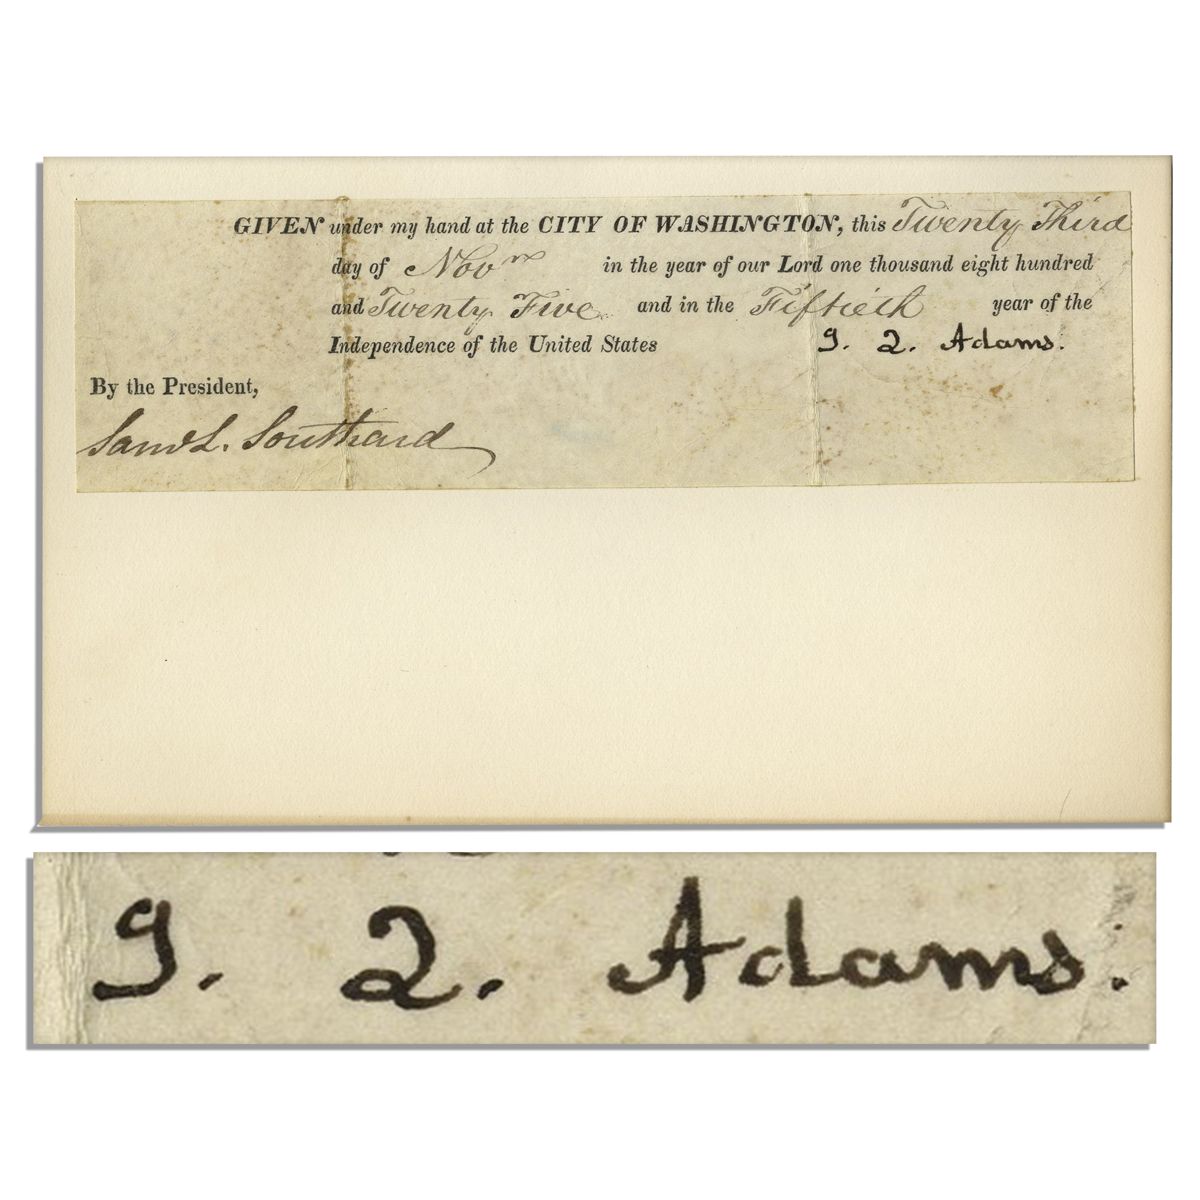 GIVEN under my hand at the CITY OF WASHINGTON, this Twenty Third
day of Novr in the year of our Lord one thousand eight hundred
and Twenty Five and in the Fiftieth year of the
Independence of the United States J. Q. Adams.
By the President,
Saml L. Southard
J. Q. Adams.